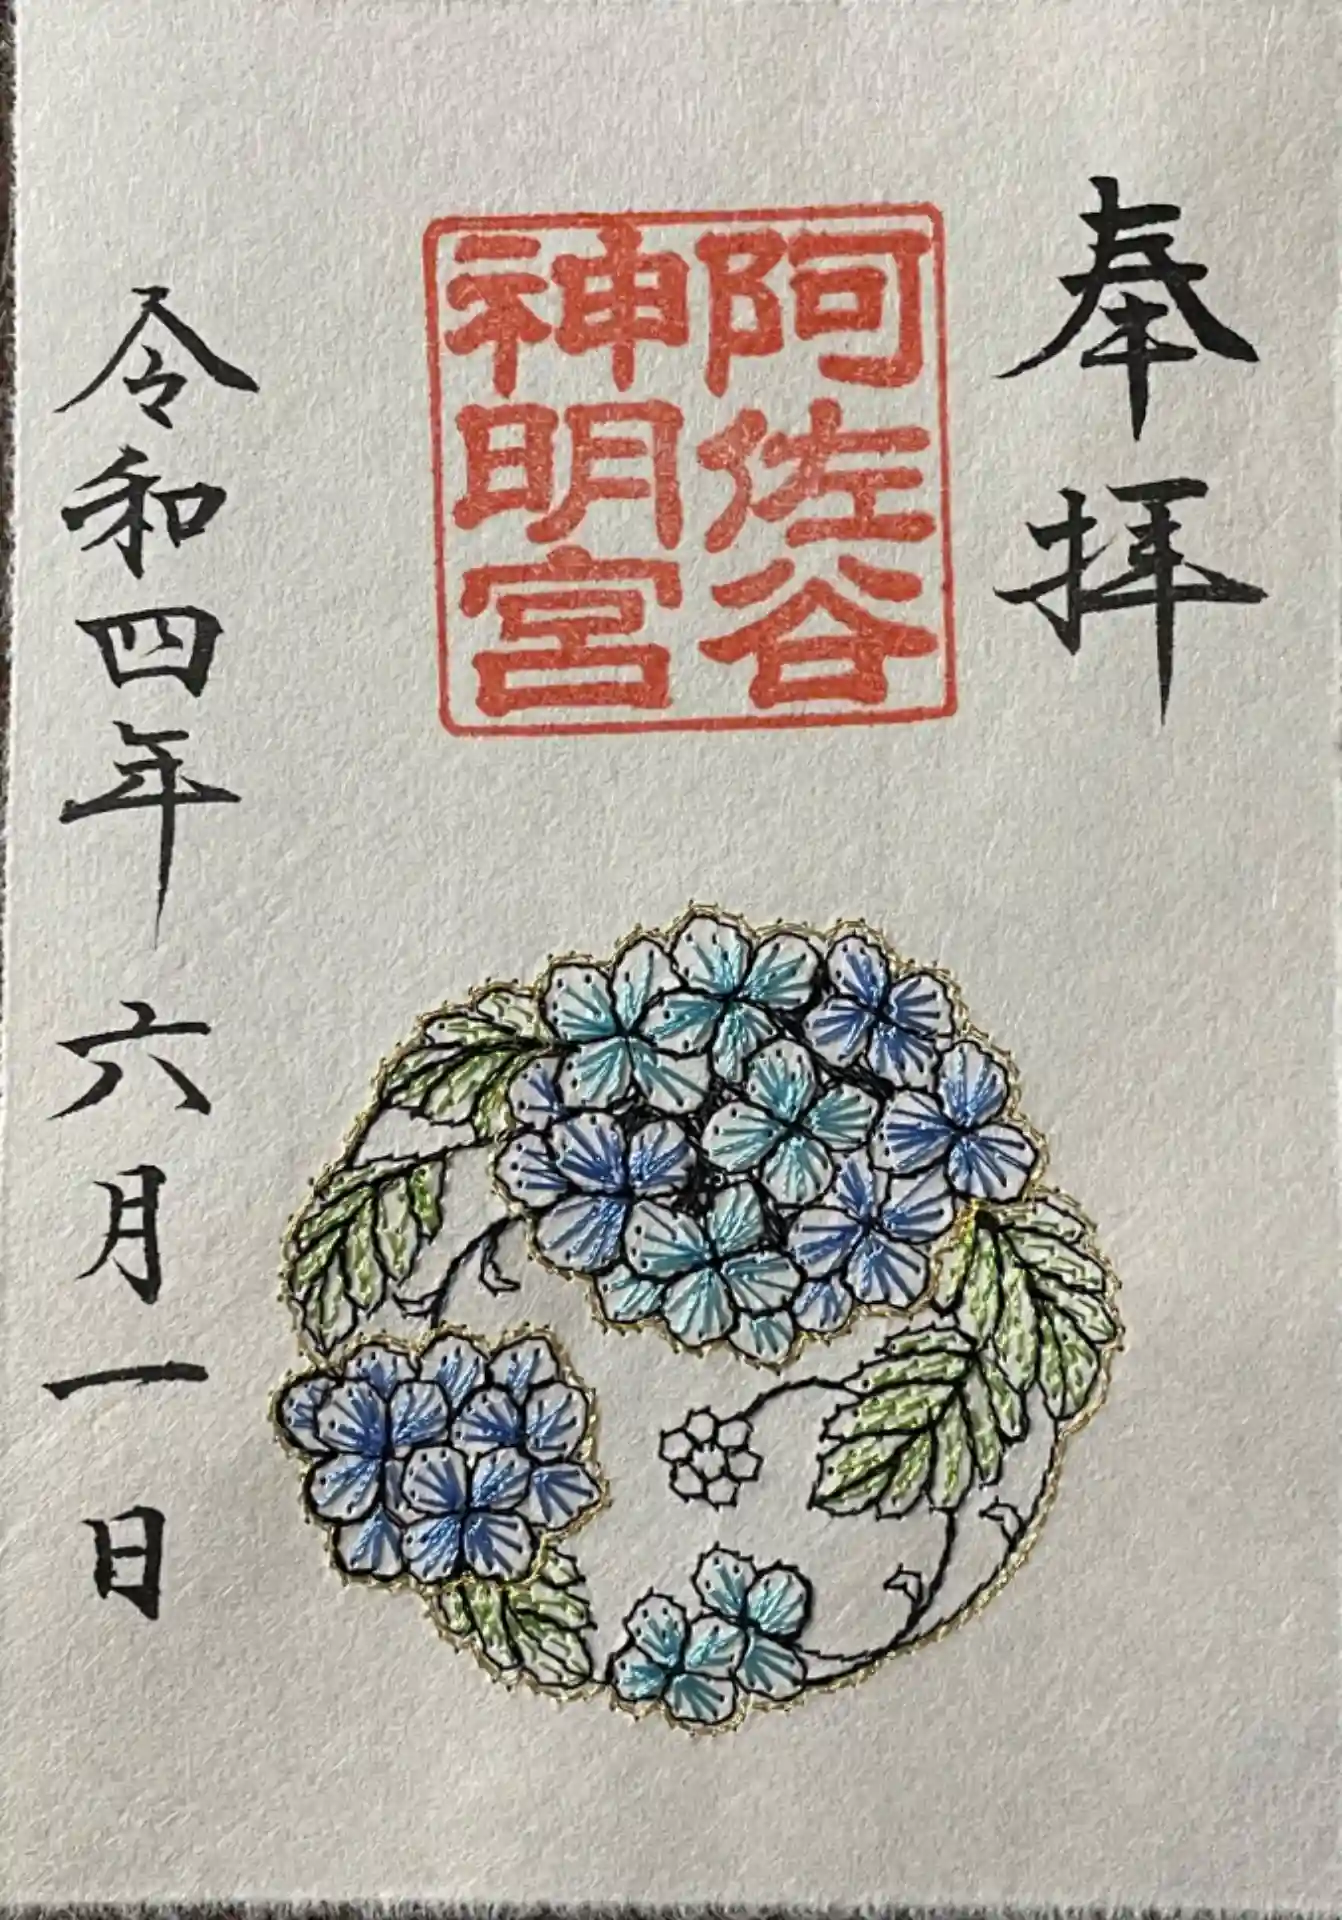 奉拝
阿佐谷
神明宮
令和四年六月一日